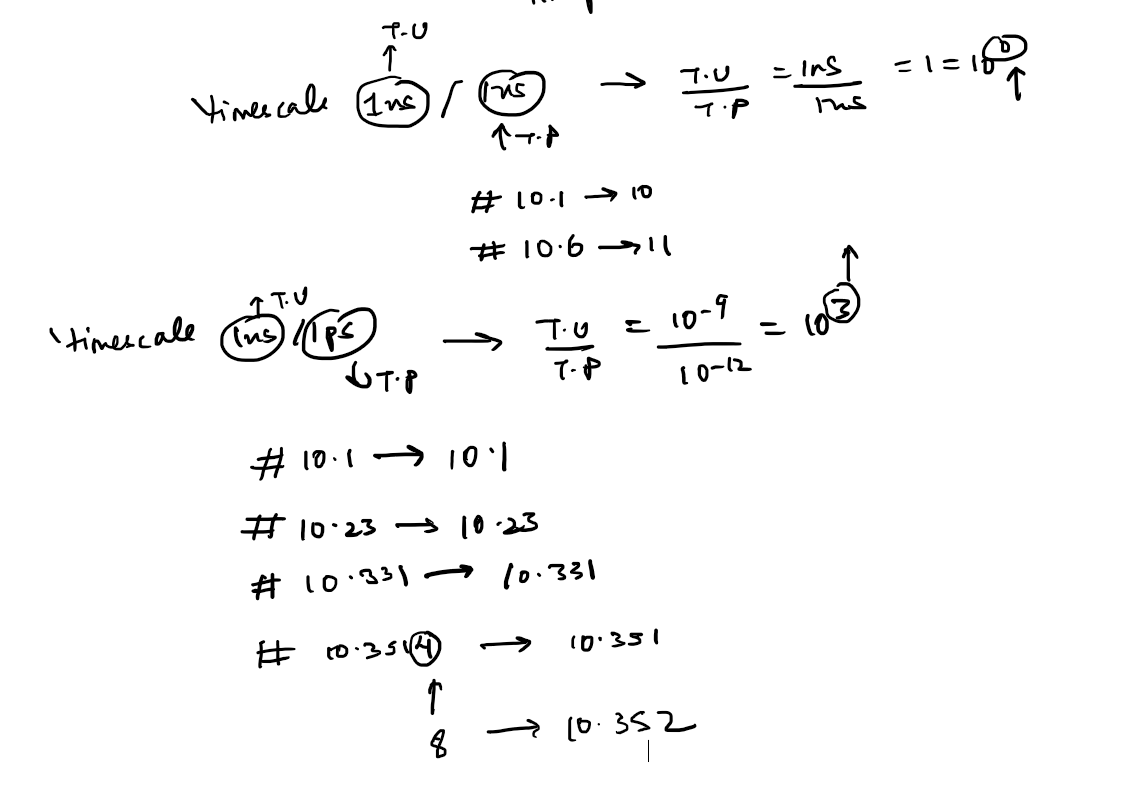 T.U
`timescale 1ns / 1ns → T.U / T.P = 1ns / 1ns = 1 = 10^0
↑ T.P
# 10.1 → 10
# 10.6 → 11
↑ T.U
`timescale 1ns / 1ps → T.U / T.P = 10^-9 / 10^-12 = 10^3
↓ T.P
# 10.1 → 10.1
# 10.23 → 10.23
# 10.331 → 10.331
# 10.3514 → 10.351
↑
8 → 10.352